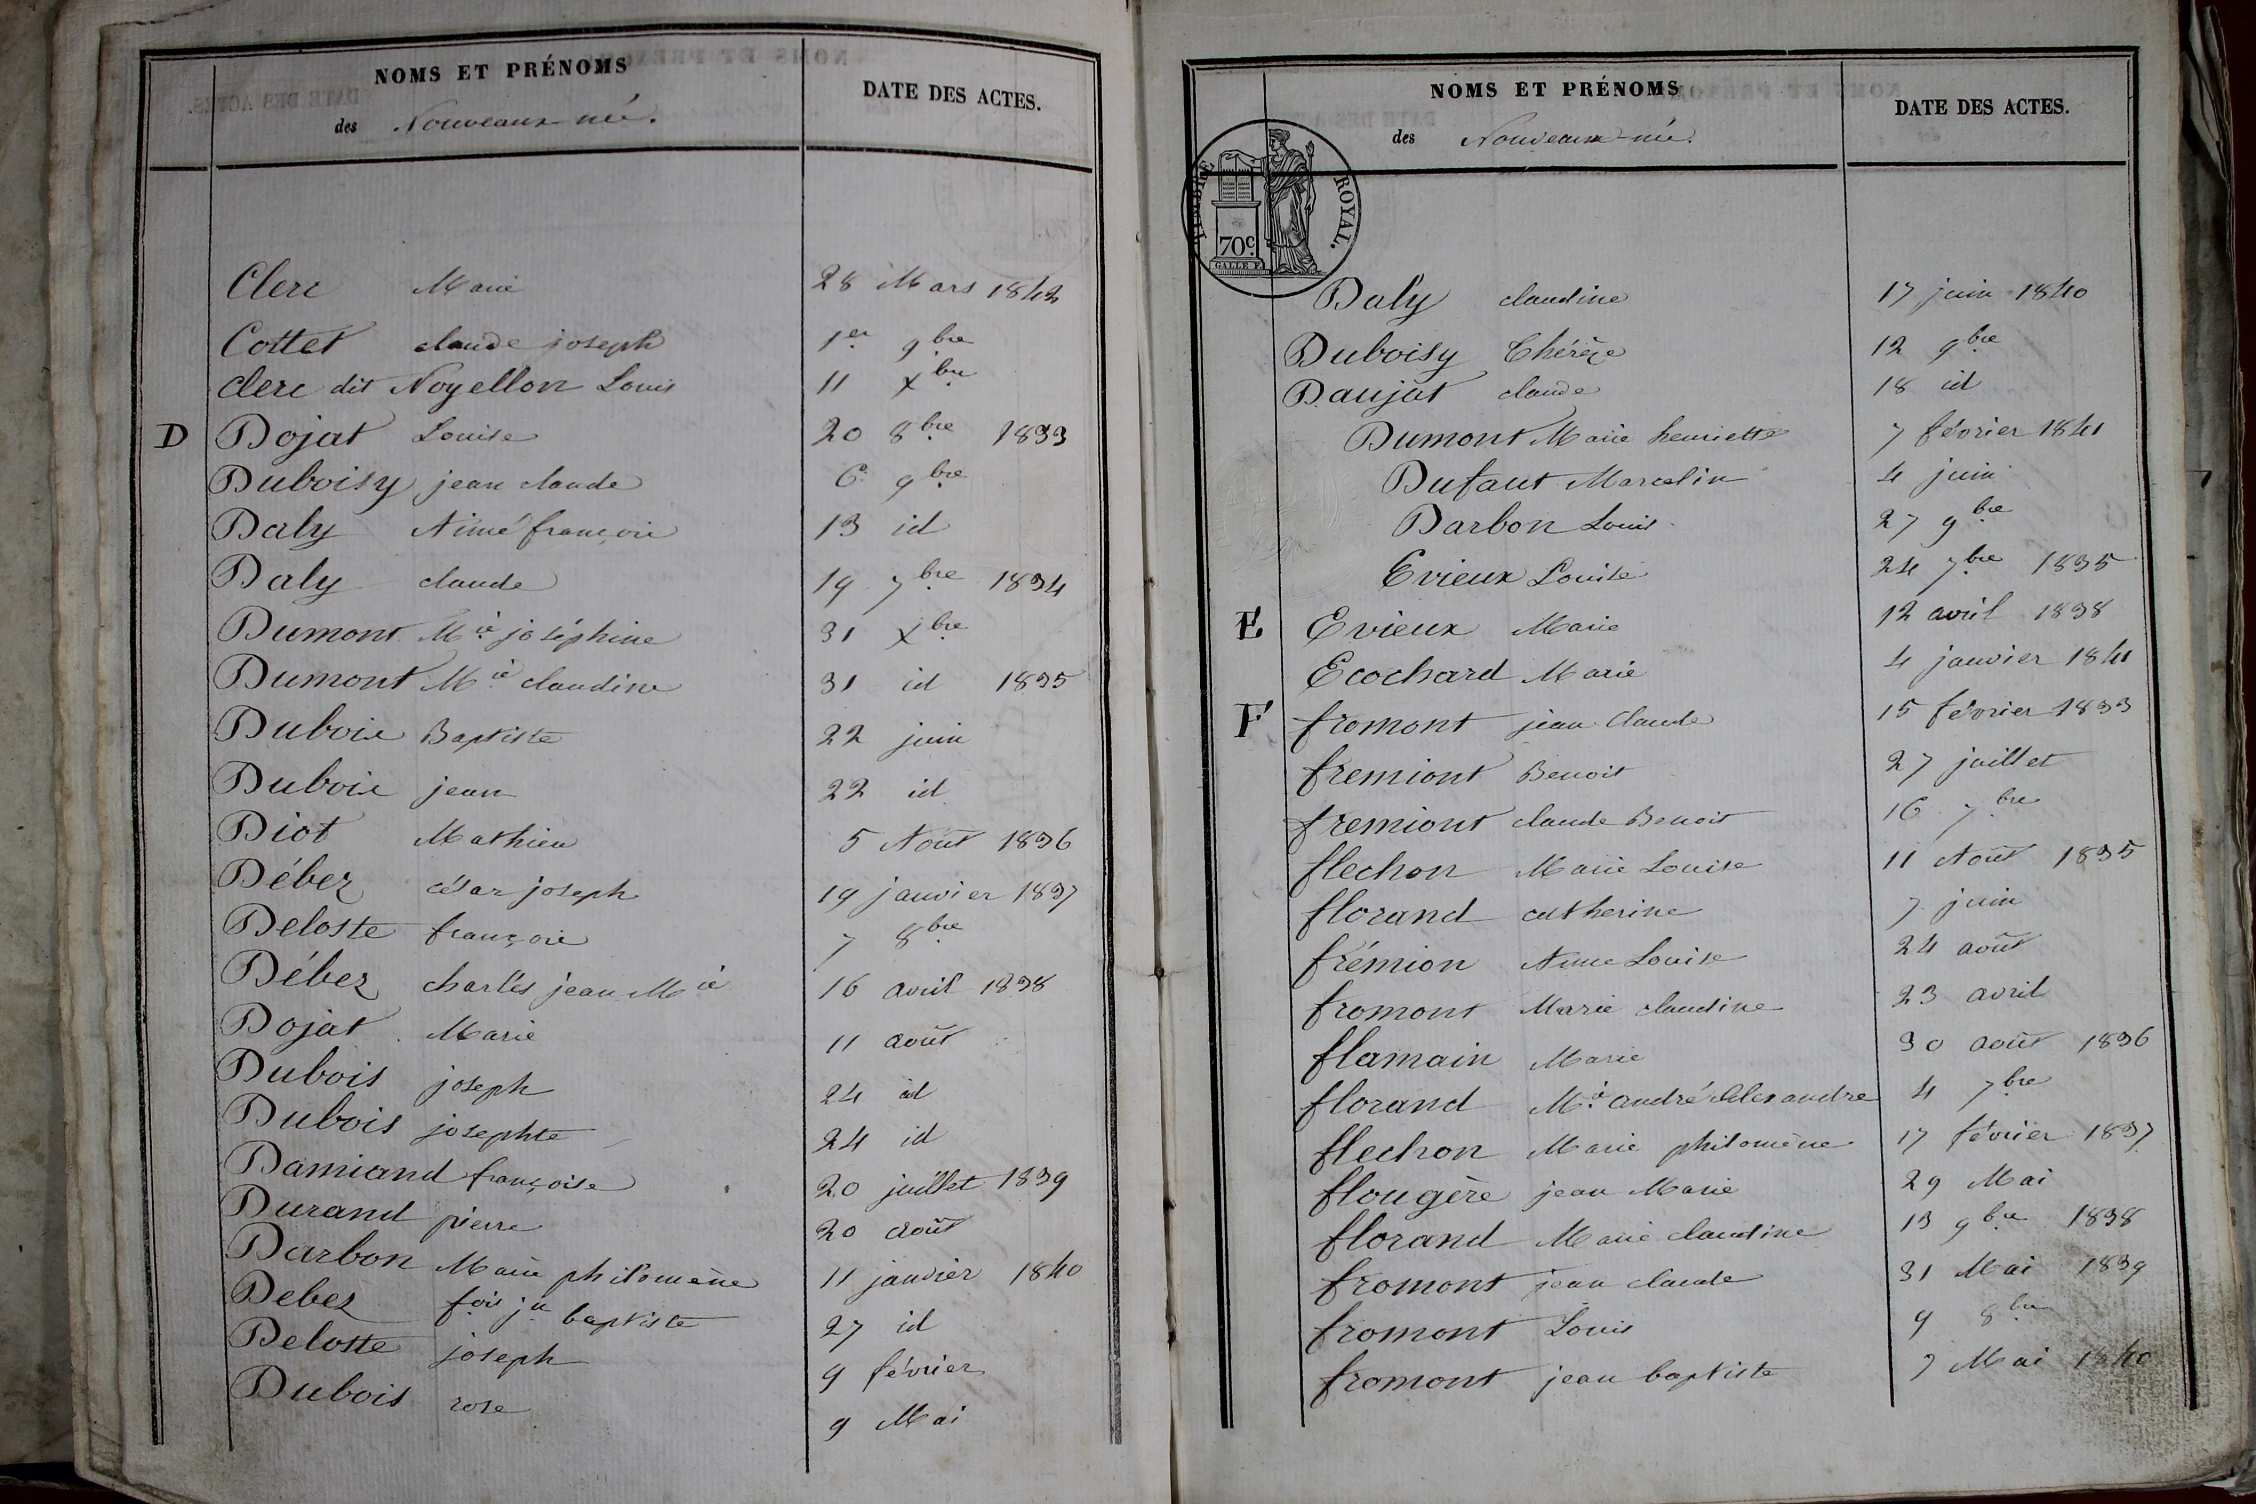 NOMS ET PRÉNOMS
des Nouveaux-nés.
DATE DES ACTES.
Clerc Marie 28 Mars 1842
Cottet claude joseph 1er 9bre
Clerc dit Noyellon Louis 11 Xbre
D Dojat Louise 20 8bre 1833
Duboisy jean claude 6 9bre
Daly Aimé françois 13 id
Daly claude 19 7bre 1834
Dumont Mie joséphine 31 Xbre
Dumont Mie claudine 31 id 1835
Dubois Baptiste 22 juin
Dubois jean 22 id
Diot Mathieu 5 Août 1836
Débez césar joseph 19 janvier 1837
Deloste françois 7 8bre
Débez charles jean Mie 16 avril 1838
Dojat Marie 11 août
Dubois joseph 24 id
Dubois josephte 24 id
Damiand françoise 20 juillet 1839
Durand pierre 20 août
Darbon Marie philomène 11 janvier 1840
Debez fois jn baptiste 27 id
Deloste joseph 9 février
Dubois rose 9 Mai
NOMS ET PRÉNOMS
des Nouveaux-nés.
DATE DES ACTES.
TIMBRE ROYAL.
70c
GALLE F.
Daly claudine 17 juin 1840
Duboisy Thérèze 12 9bre
Daujat claude 18 id
Dumont Marie henriette 7 février 1841
Dufaut Marcelin 4 juin
Darbon Louis 27 9bre
Evieux Louise 24 7bre 1835
E Evieux Marie 12 avril 1838
Ecochard Marie 4 janvier 1841
F fromont jean Claude 15 février 1833
fremiont Benoit 27 juillet
fremiont claude Benoit 16 7bre
flechon Marie Louise 11 Août 1835
florand catherine 7 juin
frémion Anne Louise 24 août
fromont Marie claudine 23 avril
flamain Marie 30 août 1836
florand Mie andré Alexandre 4 7bre
flechon Marie philomène 17 février 1837
flougère jean Marie 29 Mai
florand Marie claudine 13 9bre 1838
fromont jean claude 31 Mai 1839
fromont Louis 9 8bre
fromont jean baptiste 7 Mai 1840